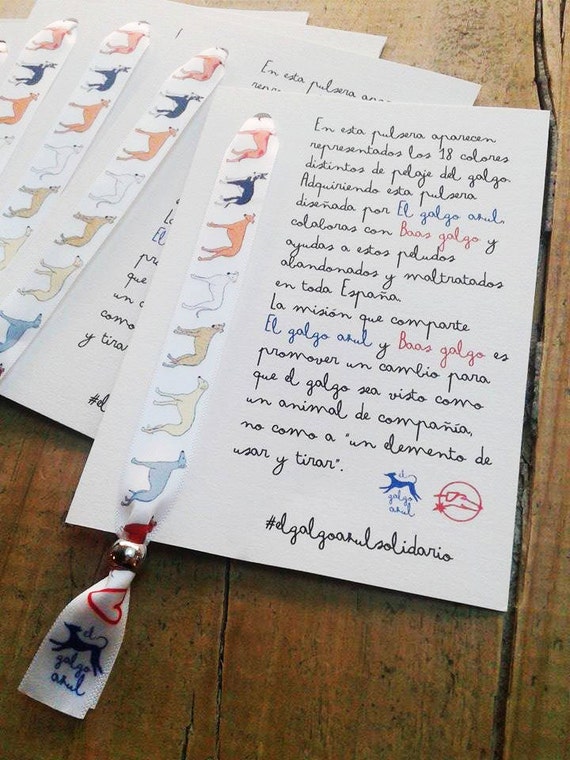 En esta pulsera aparecen
representados los 18 colores
distintos de pelaje del galgo.
Adquiriendo esta pulsera
diseñada por El galgo azul,
colaboras con Baas galgo y
ayudas a estos peludos
abandonados y maltratados
en toda España.
La misión que comparte
El galgo azul y Baas galgo es
promover un cambio para
que el galgo sea visto como
un animal de compañía,
no como a "un elemento de
usar y tirar".
el
galgo
azul
#elgalgoazulsolidario
el
galgo
azul
En esta pulsera
La
El
que
un a
como
y tirar
#e